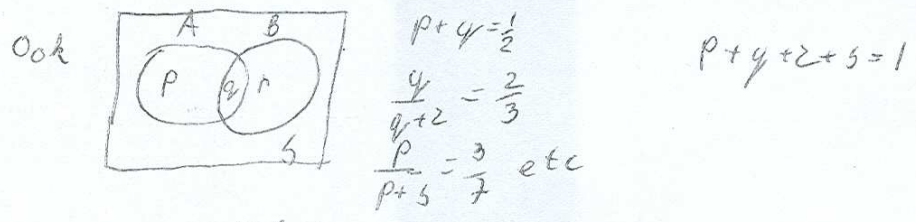 Ook
A B
p q r
s
p+q=1/2
q/(q+r) = 2/3
p/(p+s) = 3/7 etc
p+q+r+s=1